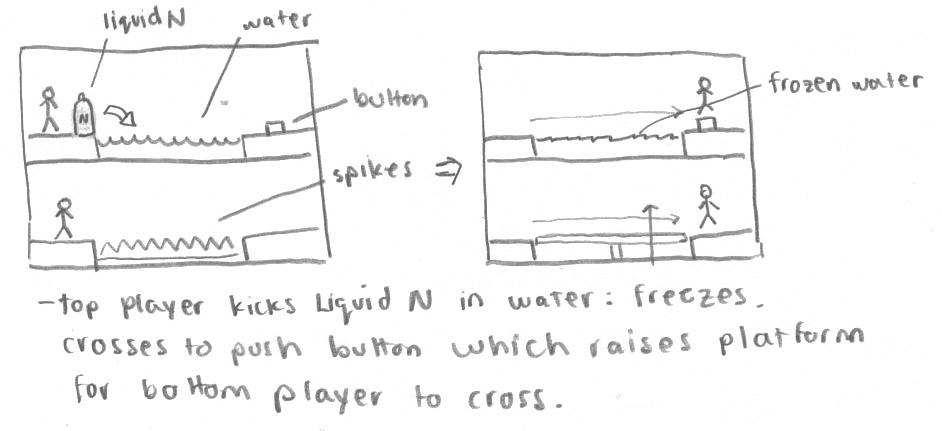 liquid N
water
N
button
spikes
frozen water
-top player kicks Liquid N in water: freezes.
crosses to push button which raises platform
for bottom player to cross.